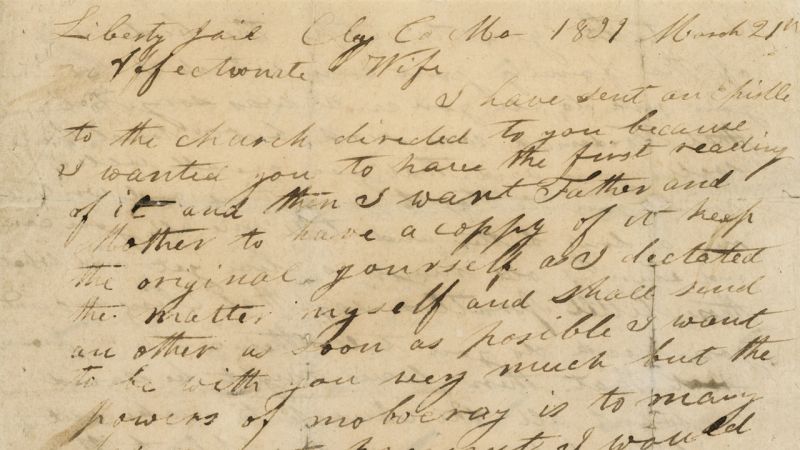 Liberty Jail Clay Co Mo 1839 March 21st
Affectionate Wife
I have sent an epistle
to the church directed to you because
I wanted you to have the first reading
of it and then I want Father and
Mother to have a coppy of it keep
the original yourself as I dectated
the matter myself and shall send
an other as soon as posible I want
to be with you very much but the
powers of mobocray is to many
I would